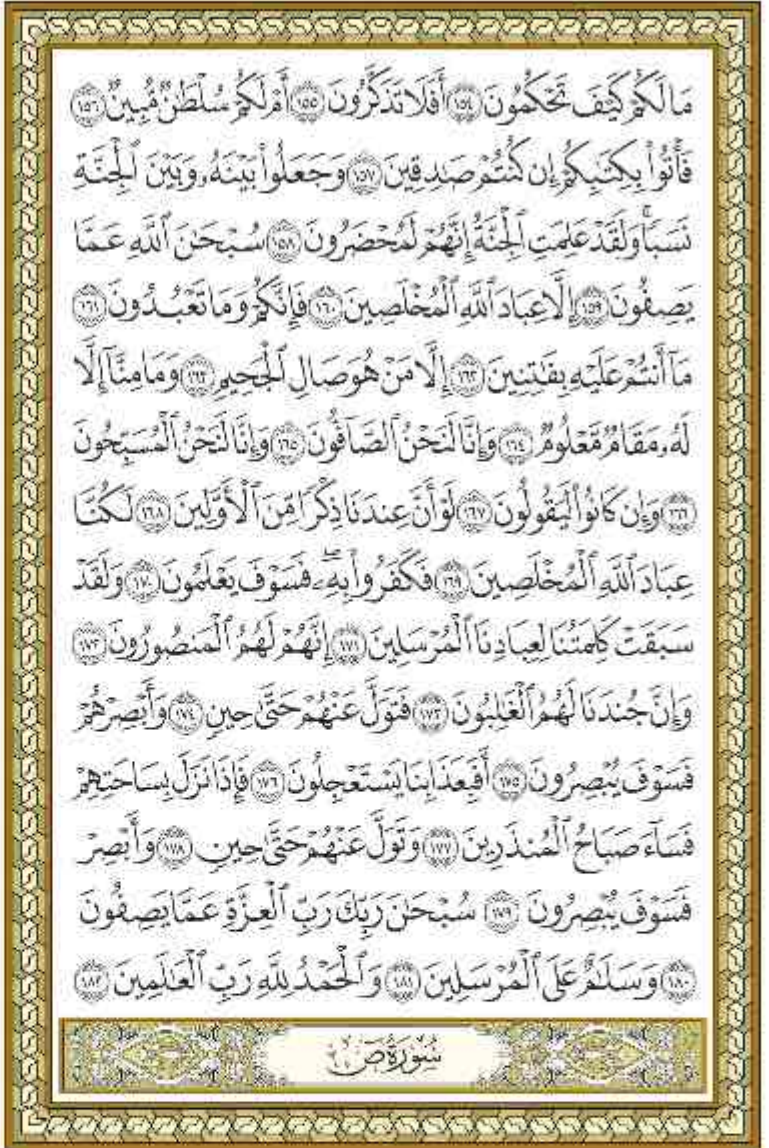 مَا لَكُمْ كَيْفَ تَحْكُمُونَ ١٥٤ أَفَلَا تَذَكَّرُونَ ١٥٥ أَمْ لَكُمْ سُلْطَٰنٌ مُّبِينٌ ١٥٦
فَأْتُوا۟ بِكِتَٰبِكُمْ إِن كُنتُمْ صَٰدِقِينَ ١٥٧ وَجَعَلُوا۟ بَيْنَهُۥ وَبَيْنَ ٱلْجِنَّةِ
نَسَبًا ۚ وَلَقَدْ عَلِمَتِ ٱلْجِنَّةُ إِنَّهُمْ لَمُحْضَرُونَ ١٥٨ سُبْحَٰنَ ٱللَّهِ عَمَّا
يَصِفُونَ ١٥٩ إِلَّا عِبَادَ ٱللَّهِ ٱلْمُخْلَصِينَ ١٦٠ فَإِنَّكُمْ وَمَا تَعْبُدُونَ ١٦١
مَآ أَنتُمْ عَلَيْهِ بِفَٰتِنِينَ ١٦٢ إِلَّا مَنْ هُوَ صَالِ ٱلْجَحِيمِ ١٦٣ وَمَا مِنَّآ إِلَّا
لَهُۥ مَقَامٌ مَّعْلُومٌ ١٦٤ وَإِنَّا لَنَحْنُ ٱلصَّآفُّونَ ١٦٥ وَإِنَّا لَنَحْنُ ٱلْمُسَبِّحُونَ
١٦٦ وَإِن كَانُوا۟ لَيَقُولُونَ ١٦٧ لَوْ أَنَّ عِندَنَا ذِكْرًا مِّنَ ٱلْأَوَّلِينَ ١٦٨ لَكُنَّا
عِبَادَ ٱللَّهِ ٱلْمُخْلَصِينَ ١٦٩ فَكَفَرُوا۟ بِهِۦ ۖ فَسَوْفَ يَعْلَمُونَ ١٧٠ وَلَقَدْ
سَبَقَتْ كَلِمَتُنَا لِعِبَادِنَا ٱلْمُرْسَلِينَ ١٧١ إِنَّهُمْ لَهُمُ ٱلْمَنصُورُونَ ١٧٢
وَإِنَّ جُندَنَا لَهُمُ ٱلْغَٰلِبُونَ ١٧٣ فَتَوَلَّ عَنْهُمْ حَتَّىٰ حِينٍ ١٧٤ وَأَبْصِرْهُمْ
فَسَوْفَ يُبْصِرُونَ ١٧٥ أَفَبِعَذَابِنَا يَسْتَعْجِلُونَ ١٧٦ فَإِذَا نَزَلَ بِسَاحَتِهِمْ
فَسَآءَ صَبَاحُ ٱلْمُنذَرِينَ ١٧٧ وَتَوَلَّ عَنْهُمْ حَتَّىٰ حِينٍ ١٧٨ وَأَبْصِرْ
فَسَوْفَ يُبْصِرُونَ ١٧٩ سُبْحَٰنَ رَبِّكَ رَبِّ ٱلْعِزَّةِ عَمَّا يَصِفُونَ
١٨٠ وَسَلَٰمٌ عَلَى ٱلْمُرْسَلِينَ ١٨١ وَٱلْحَمْدُ لِلَّهِ رَبِّ ٱلْعَٰلَمِينَ ١٨٢
سُورَةُ صٓ